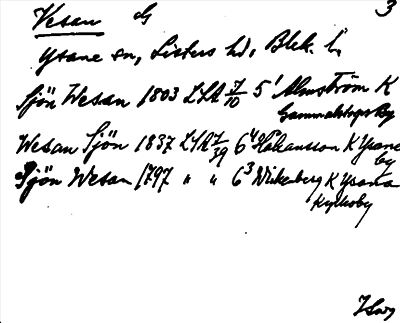 Vesan 3
Ysane sn, Listers hd, Blek. l.
Sjön Wesan 1803 LSA 7/10 5¹ Almström K
Gammalstorps by
Wesan Sjön 1837 LSA 7/39 6⁴ Håkansson K Ysane
by
Sjön Wesan 1797 " " 6³ Wirkenberg K Ysana
Kyrkoby